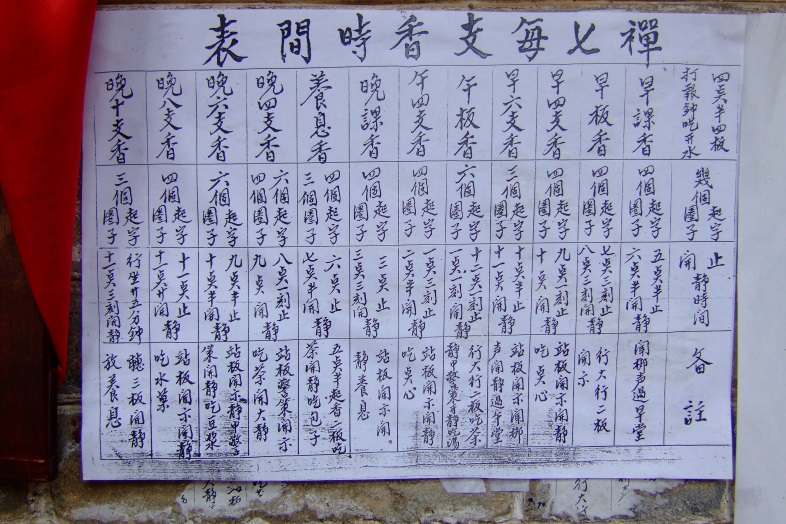 禪七每支香時間表
四奌半四板
打報鐘吃开水
幾個起字
圈子
止
開靜時间
备註
早課香
四個起字
圈子
五奌半止
六奌半開靜
開梆声過早堂
早板香
四個起字
圈子
七奌三刻止
八奌三刻開靜
行大行二板
開示
早四支香
四個起字
圈子
九奌一刻止
十奌開靜
站板開示開靜
吃奌心
早六支香
三個起字
圈子
十奌半止
十一奌開靜
站板開示開梆
声開靜過午堂
午板香
六個起字
圈子
十二奌一刻止
一奌一刻開靜
行大行二板吃茶
静甲警策开静吃湯
午四支香
四個起字
圈子
一奌三刻止
二奌半開靜
站板開示開静
吃奌心
晚課香
四個起字
圈子
三奌止
三奌三刻開靜
站板開示開
静養息
養息香
四個起字
三個圈子
六奌止
七奌半開靜
五奌半起香二板吃
茶開静吃包子
晚四支香
六個起字
四個圈子
八奌一刻止
九奌開靜
站板警策開示
吃茶開大静
晚六支香
六個起字
圈子
九奌半止
十奌半開靜
站板開示静甲警
策開静吃豆漿
晚八支香
四個起字
圈子
十一奌止
十一奌开靜
站板開示開静
吃水菓
晚十支香
三個起字
圈子
行坐廿五分鐘
十一奌三刻開静
聽三板開静
放養息